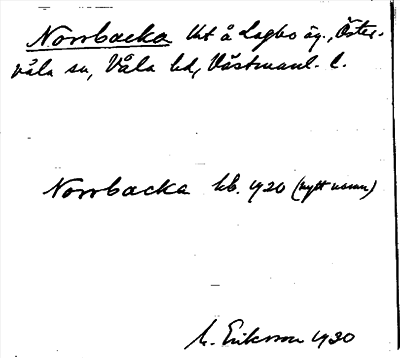 Norrbacka lht å Lagbo äg., Öster-
våla sn, Våla hd, Västmanl. l.
Norrbacka kb. 1920 (nytt namn)
M. Eriksson 1930